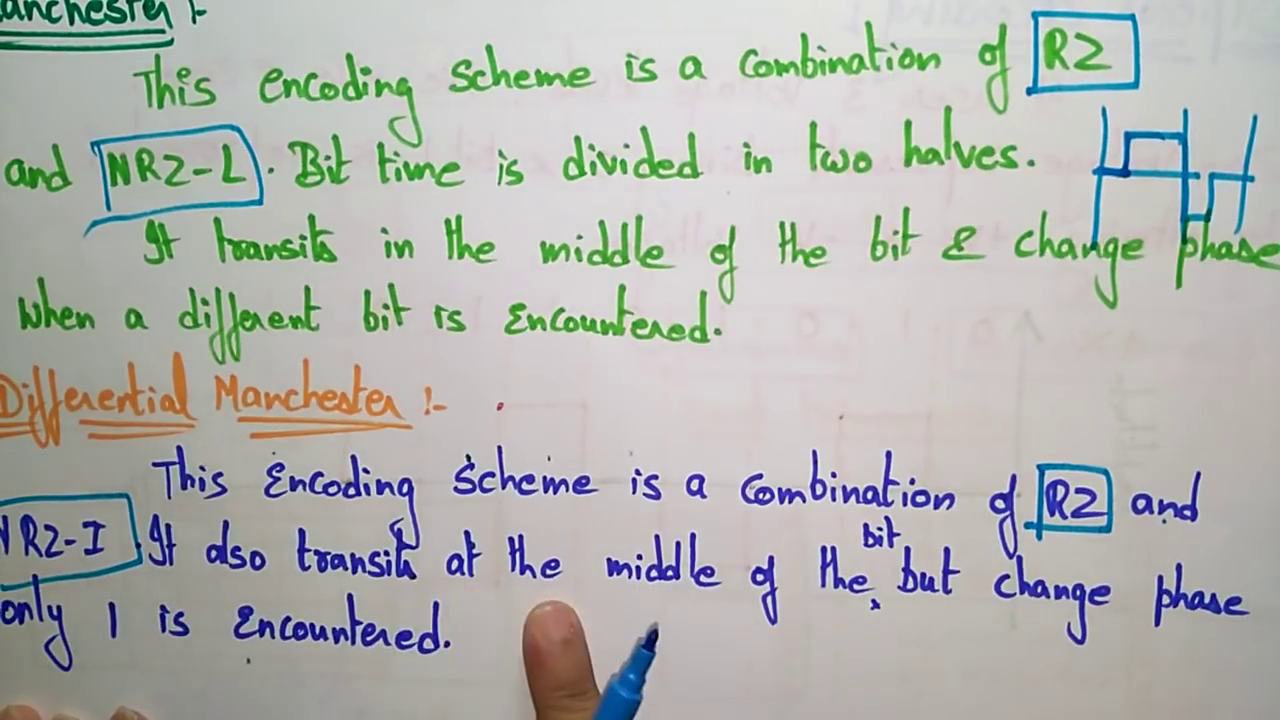 Manchester :-
This encoding scheme is a combination of RZ
and NRZ-L. Bit time is divided in two halves.
It transits in the middle of the bit & change phase
when a different bit is encountered.
Differential Manchester :-
This Encoding Scheme is a combination of RZ and
NRZ-I It also transits at the middle of the bit but change phase
only 1 is Encountered.